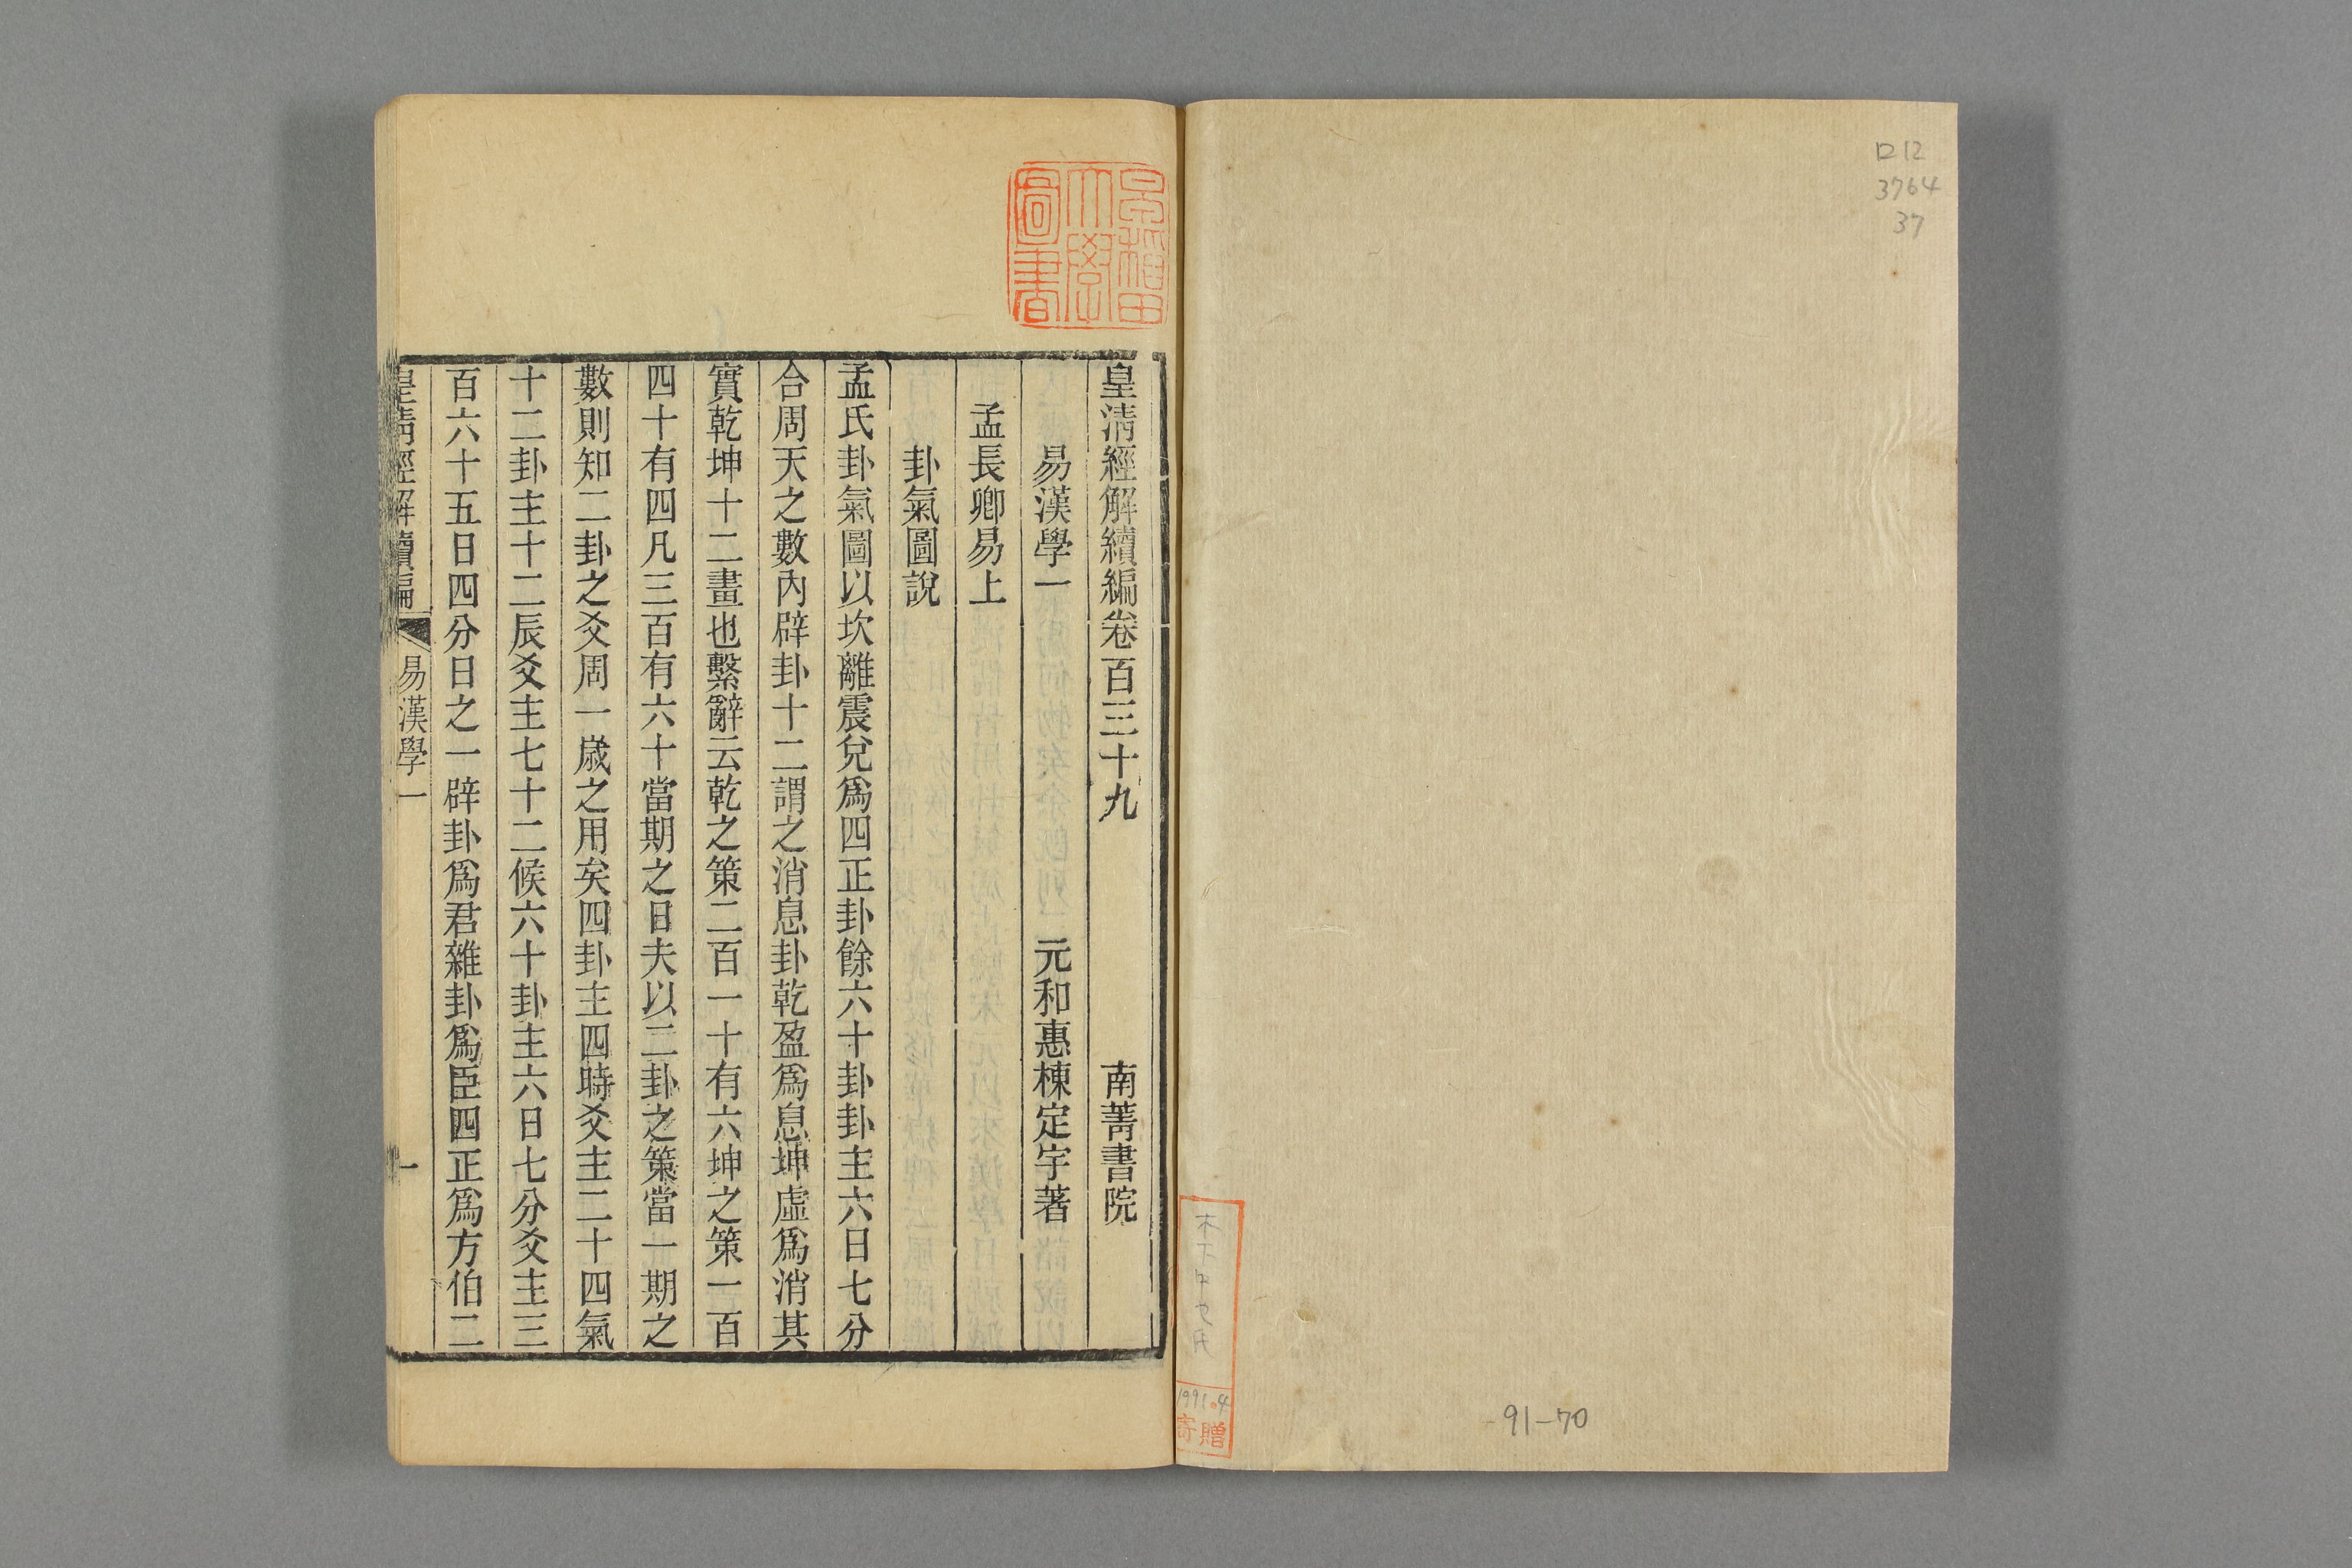 ロ12
3764
37
91-70
1991.4
寄贈
早稲田大學圖書
皇清經解續編卷百三十九 南菁書院
易漢學一 元和惠棟定宇著
孟長卿易上
卦氣圖說
孟氏卦氣圖以坎離震兌爲四正卦餘六十卦卦主六日七分
合周天之數內辟卦十二謂之消息卦乾盈爲息坤虛爲消其
實乾坤十二畫也繫辭云乾之策二百一十有六坤之策一百
四十有四凡三百有六十當期之日夫以二卦之策當一期之
數則知二卦之爻周一歲之用矣四卦主四時爻主二十四氣
十二卦主十二辰爻主七十二候六十卦主六日七分爻主三
百六十五日四分日之一辟卦爲君雜卦爲臣四正爲方伯二
皇清經解續編 易漢學一 一